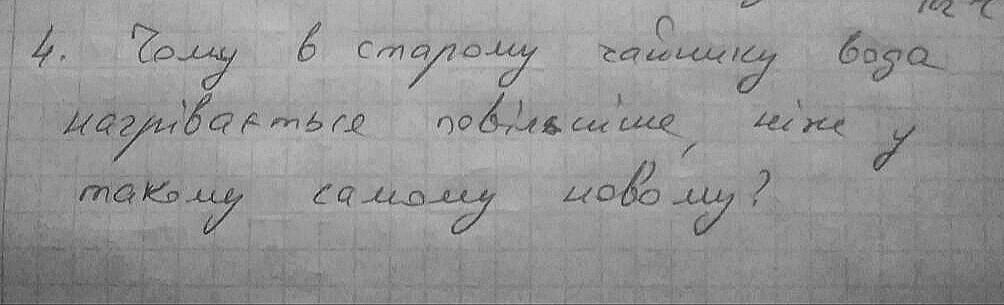 4. Чому в старому чайнику вода
нагрівається повільніше, ніж у
такому самому новому?